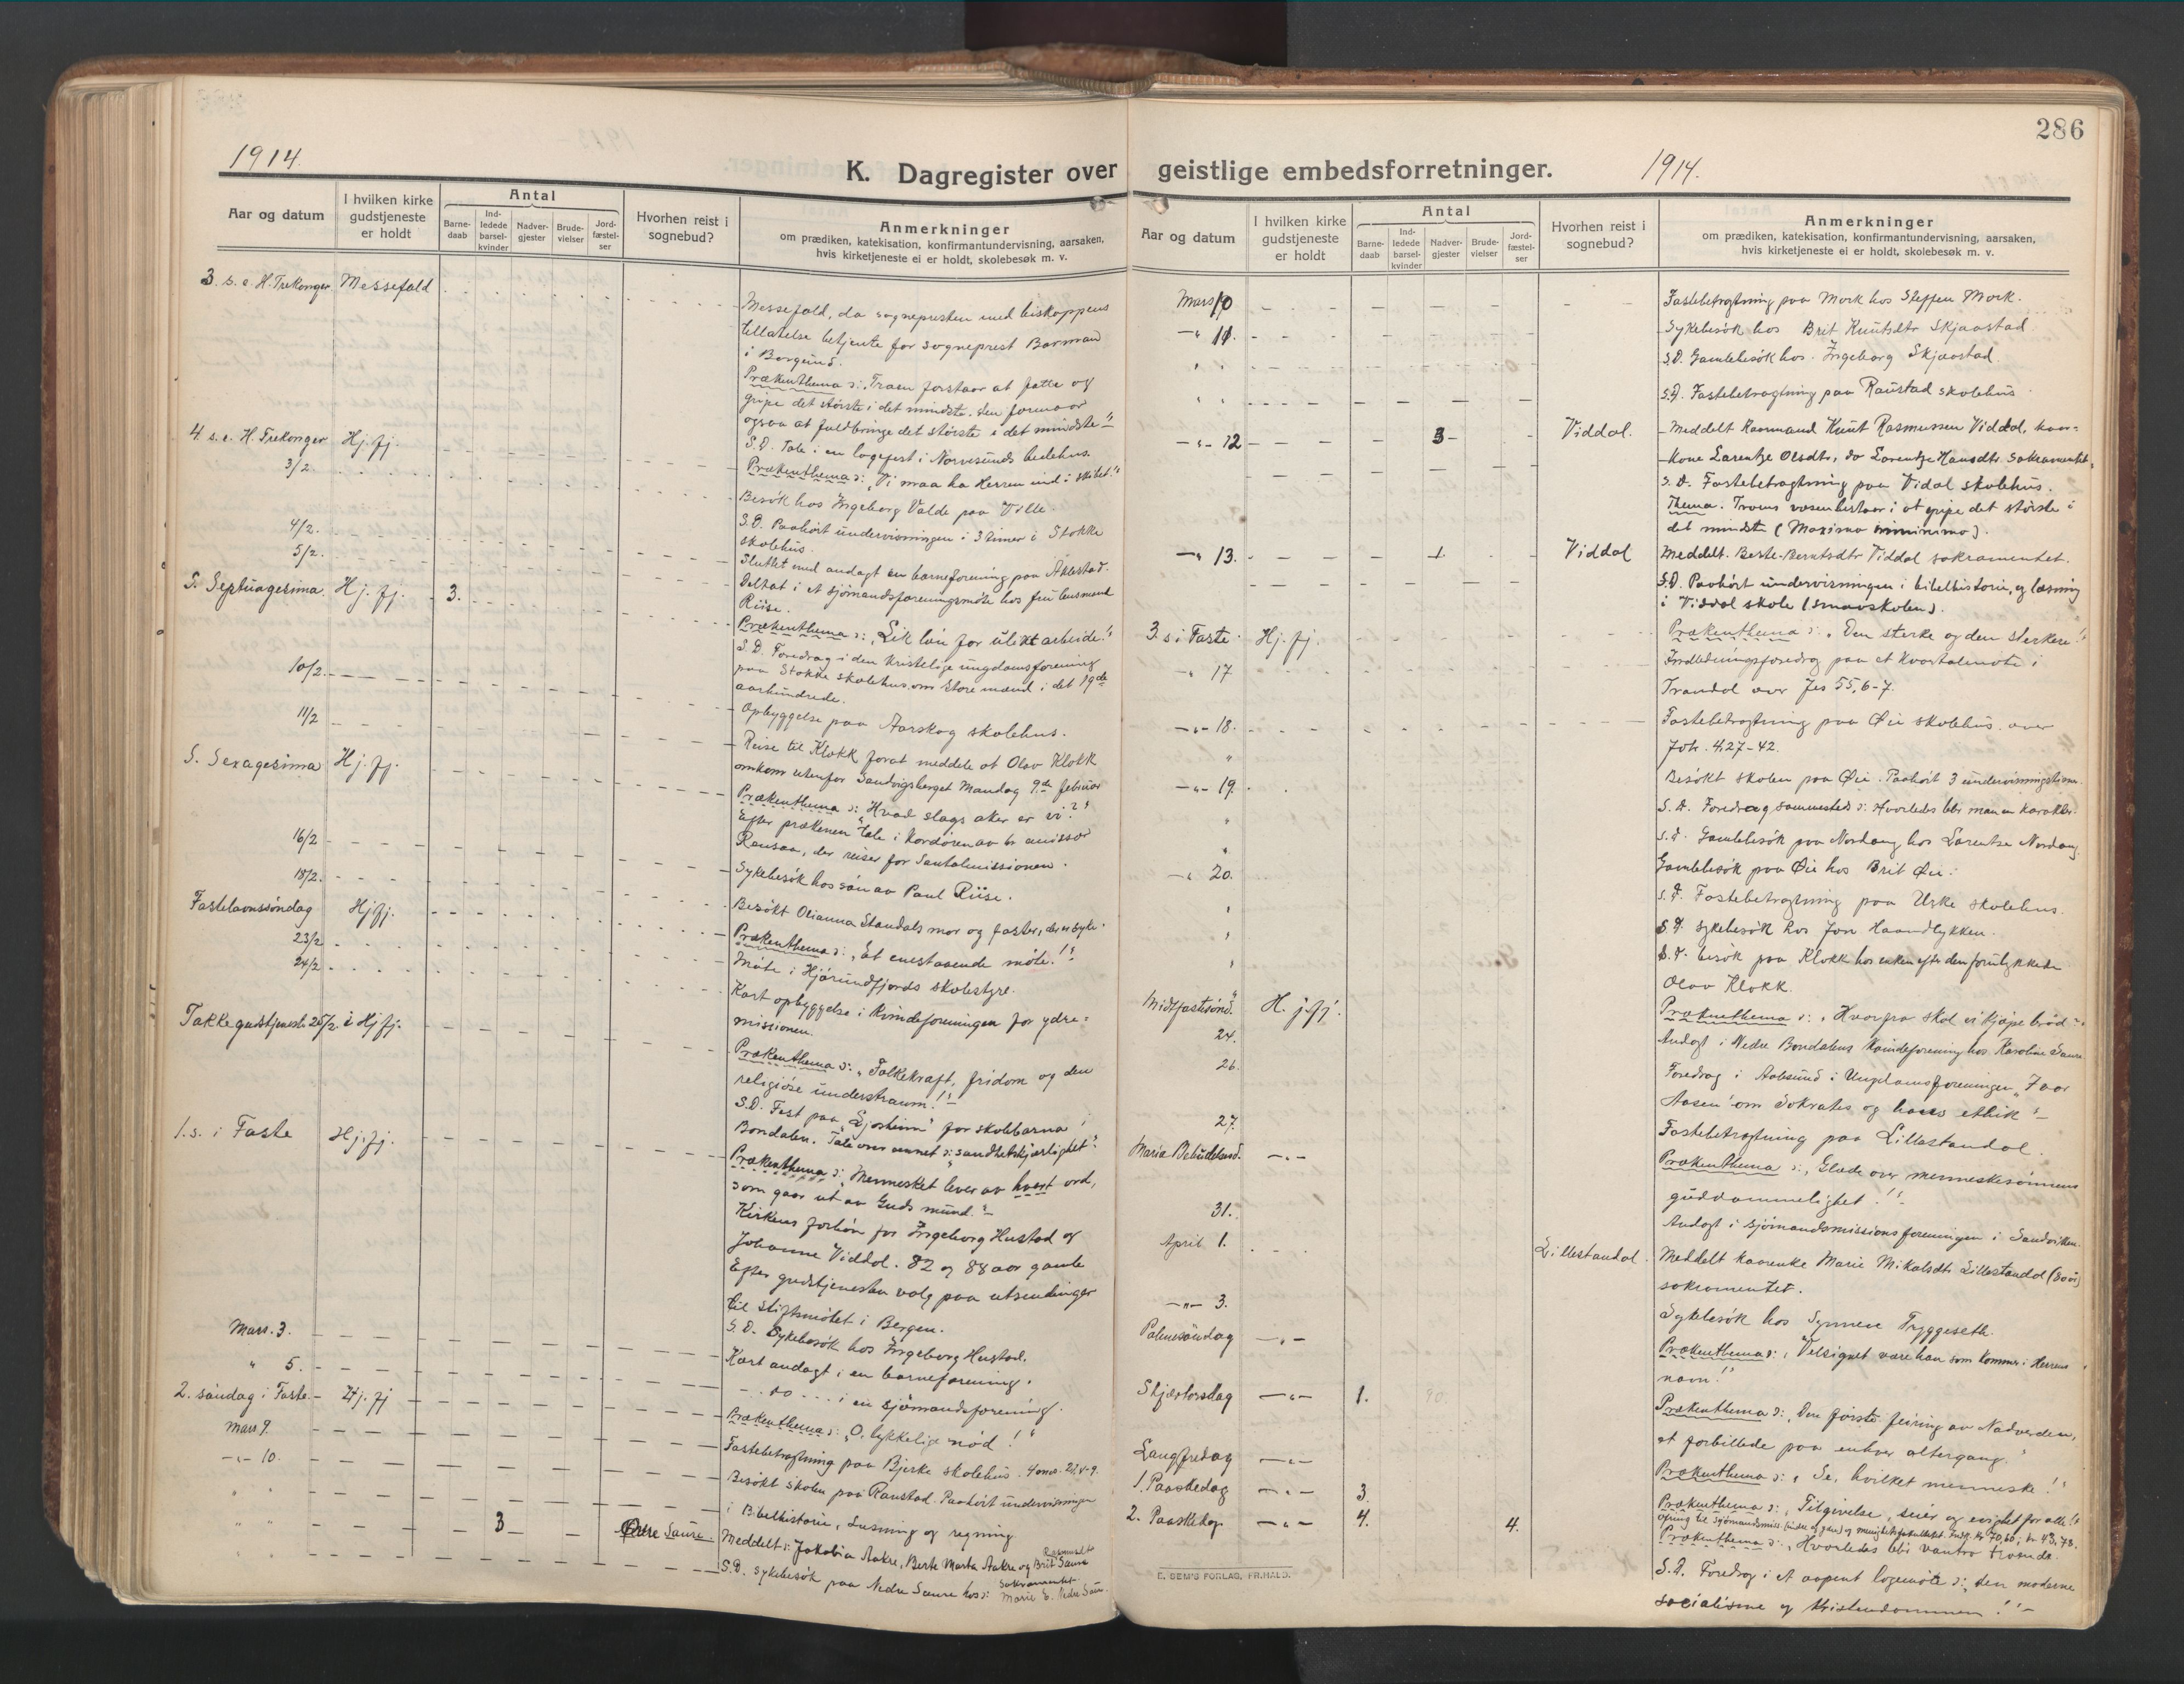 286
1914.
K. Dagregister over geistlige embedsforretninger.
1914.
Aar og datum
I hvilken kirke gudstjeneste er holdt
Antal
Barne-daab
Ind-ledede barsel-kvinder
Nadver-gjester
Brude-vielser
Jord-fæstel-ser
Hvorhen reist i sognebud?
Anmerkninger
om prædiken, katekisation, konfirmantundervisning, aarsaken,
hvis kirketjeneste ei er holdt, skolebesøk m. v.
3. s. e. H. Trekonger Messefald
Messefald, da sognepresten med biskoppens
tillatelse betjente for sogneprest Barman
i Borgund.
4 s. e. H. Trekonger Hj. fj.
Prækenthema ɔ: Troen forstaar at fatte og
gripe det største i det mindste. den formaar
ogsaa at fuldbringe det største i det mindste"
S. D. Tale i en logefest i Nørvesunds bedehus.
3/2
Prækenthema ɔ: "Vi maa ha Herren ind i skibet!"
Besøk hos Ingeborg Valde paa Tille
4/2.
S. D. Paahørt undervisningen i 3 timer i Stokke
skolehus.
5/2.
Sluttet med andagt en barneforening paa Aklestad.
Deltat i et sjømandsforeningsmøte hos fru lensmand
Riise.
S. Septuagesima. Hj. fj. 3.
Prækenthema ɔ: "Lik løn for ulikt arbeide!"
S. D. Foredrag i den kristelige ungdomsforening
paa Stokke skolehus om store mænd i det 19de
aarhundrede.
10/2.
Opbyggelse paa Aarskog skolehus.
11/2
Reise til Klokk forat meddele at Olav Klokk
omkom utenfor Sandvigsberget Mandag 9de februar
S. Sexagesima Hj. fj.
Prækenthema ɔ: "Hvad slags aker er vi?"
Efter prækenen tale i kordøren av br emissær
Ransaa, der reiser for Santalmissionen.
16/2
Sykebesøk hos søn av Paul Riise.
18/2.
Besøkt Olianna Standals mor og faster, der er syke.
Fastelavnssøndag Hj. fj.
Prækenthema ɔ: "Et enestaaende møte!"
23/2
Møte i Hjørundfjords skolestyre.
24/2
Kort opbyggelse i kvindeforeningen for ydre-
missionen.
Takkegudstjeneste 25/2. i Hj. fj.
Prækenthema ɔ: "Folkekraft, fridom og den
religiøse understraum!"
S. D. Fest paa "Ljosheim" for skolebarna i
Bondalen. Tale over emnet ɔ: "sandhetskjærlighet".
1. s. i Faste Hj. fj.
Prækenthema ɔ: "Mennesket lever av hvert ord,
som gaar ut av Guds mund."
Kirkens forbøn for Ingeborg Hustad og
Johanne Viddal. 82 og 88 aar gamle
Efter gudstjenesten valg paa utsendinger
til stiftsmøtet i Bergen.
S. D. Sykebesøk hos Ingeborg Hustad.
Mars. 3.
Kort andagt i en barneforening.
" 5.
- do - i en sjømandsforening.
2. søndag i Faste. Hj. fj
Prækenthema ɔ: "O, lykkelige nød!"
Mars 9.
Fastebetragtning paa Bjerke skolehus. 4 mos. 21. 4-9.
-"- 10.
Besøkt skolen paa Raustad. Paahørt undervisningen
i Bibelhistorie, Læsning og regning
3 Øvre Saure.
Meddelt ɔ: Jakobia Aakre, Berte Marta Aakre og Brit Rasmusdt Saure
sakramentet.
S. D. sykebesøk paa Nedre Saure hos ɔ: Marie E. Nedre Saure
Aar og datum
I hvilken kirke gudstjeneste er holdt
Antal
Barne-daab
Ind-ledede barsel-kvinder
Nadver-gjester
Brude-vielser
Jord-fæstel-ser
Hvorhen reist i sognebud?
Anmerkninger
om prædiken, katekisation, konfirmantundervisning, aarsaken,
hvis kirketjeneste ei er holdt, skolebesøk m. v.
Mars 10
Fastebetragtning paa Mork hos Steffen Mork.
-"- 11.
Sykebesøk hos Brit Knutsdtr Skjaastad
S. D. Gamlebesøk hos Ingeborg Skjaastad.
S. D. Fastebetragtning paa Raustad skolehus
-"- 12 3 Viddal.
Meddelt Kaarmand Knut Rasmussen Viddal, kaar-
kone Larentze Olsdtr, do Larentze Hansdtr sakramentet.
S. D. Fastebetragtning paa Vidal skolehus.
Thema. Troens væsen bestaar i at gripe det største i
det mindste (Maxima in minimo).
-"- 13. 1. Viddal
Meddelt. Beste-Berntsdtr Viddal sakramentet.
S. D. Paahørt undervisningen i bibelhistorie, og læsning
i Viddal skole (smaaskolen).
3. s i Faste Hj. fj.
Prækenthema ɔ: "Den sterke og den sterkere!"
-"- 17
Indledningsforedrag paa et kvartalsmøte i
Trandal over Jes 55, 6-7.
-"- 18.
Fastebetragtning paa Øie skolehus over
Joh. 4, 27-42.
Besøkt skolen paa Øie. Paahørt 3 undervisningstimer.
-"- 19.
S. D. Foredrag sammesteds ɔ: Hvorledes blir man en karakter.
S. D. Gamlebesøk paa Nordang hos Larentse Nordang.
Gamlebesøk paa Øie hos Brit Øie.
-"- 20.
S. D. Fastebetragtning paa Urke skolehus.
S. D. Sykebesøk hos Jon Haandlykken.
S. D. besøk paa Klokk hos enken efter den forulykkede
Olav Klokk.
Midtfastesønd. H. j. fj.
Prækenthema ɔ: "Hvorfra skal vi kjøpe brød?"
24.
Andagt i Nedre Bondalens kvindeforening hos Karoline Saure
26.
Foredrag i Aalesund i Ungdomsforeningen "Ivar
Aasen" om Sokrates og hans ethik"
27.
Fastebetragtning paa Lillestandal.
Mariæ Bebudelsesd. -"-
Prækenthema ɔ: "Glæde over menneskesønnens
guddommelighet!"
31.
Andagt i sjømandsmissionsforeningen i Sandviken.
April 1. Lillestandal.
Meddelt kaarenke Marie Mikalsdtr Lillestandal (80 år)
sakramentet.
-"- 3.
Sykebesøk hos Synneve Tryggeseth.
Palmesøndag -"-
Prækenthema ɔ: "Velsignet være han som kommer i Herrens
navn!"
Skjærtorsdag -"- 1.
Prækenthema ɔ: "Den første feiring av Nadverden,
et forbillede paa enhver altergang."
Langfredag -"-
Prækenthema ɔ: "Se, hvilket menneske!"
1. Paaskedag -"- 3
Prækenthema ɔ: "Tilgivelse, seier og evighet for alle!"
2. Paaskedag -"- 4. 4.
Prækenthema ɔ: "Hvorledes blir vantro troende.
S. D. Foredrag i et aapent logemøte ɔ: "den moderne
socialisme og kristendommen!"
E. SEM'S FORLAG, FR.HALD.